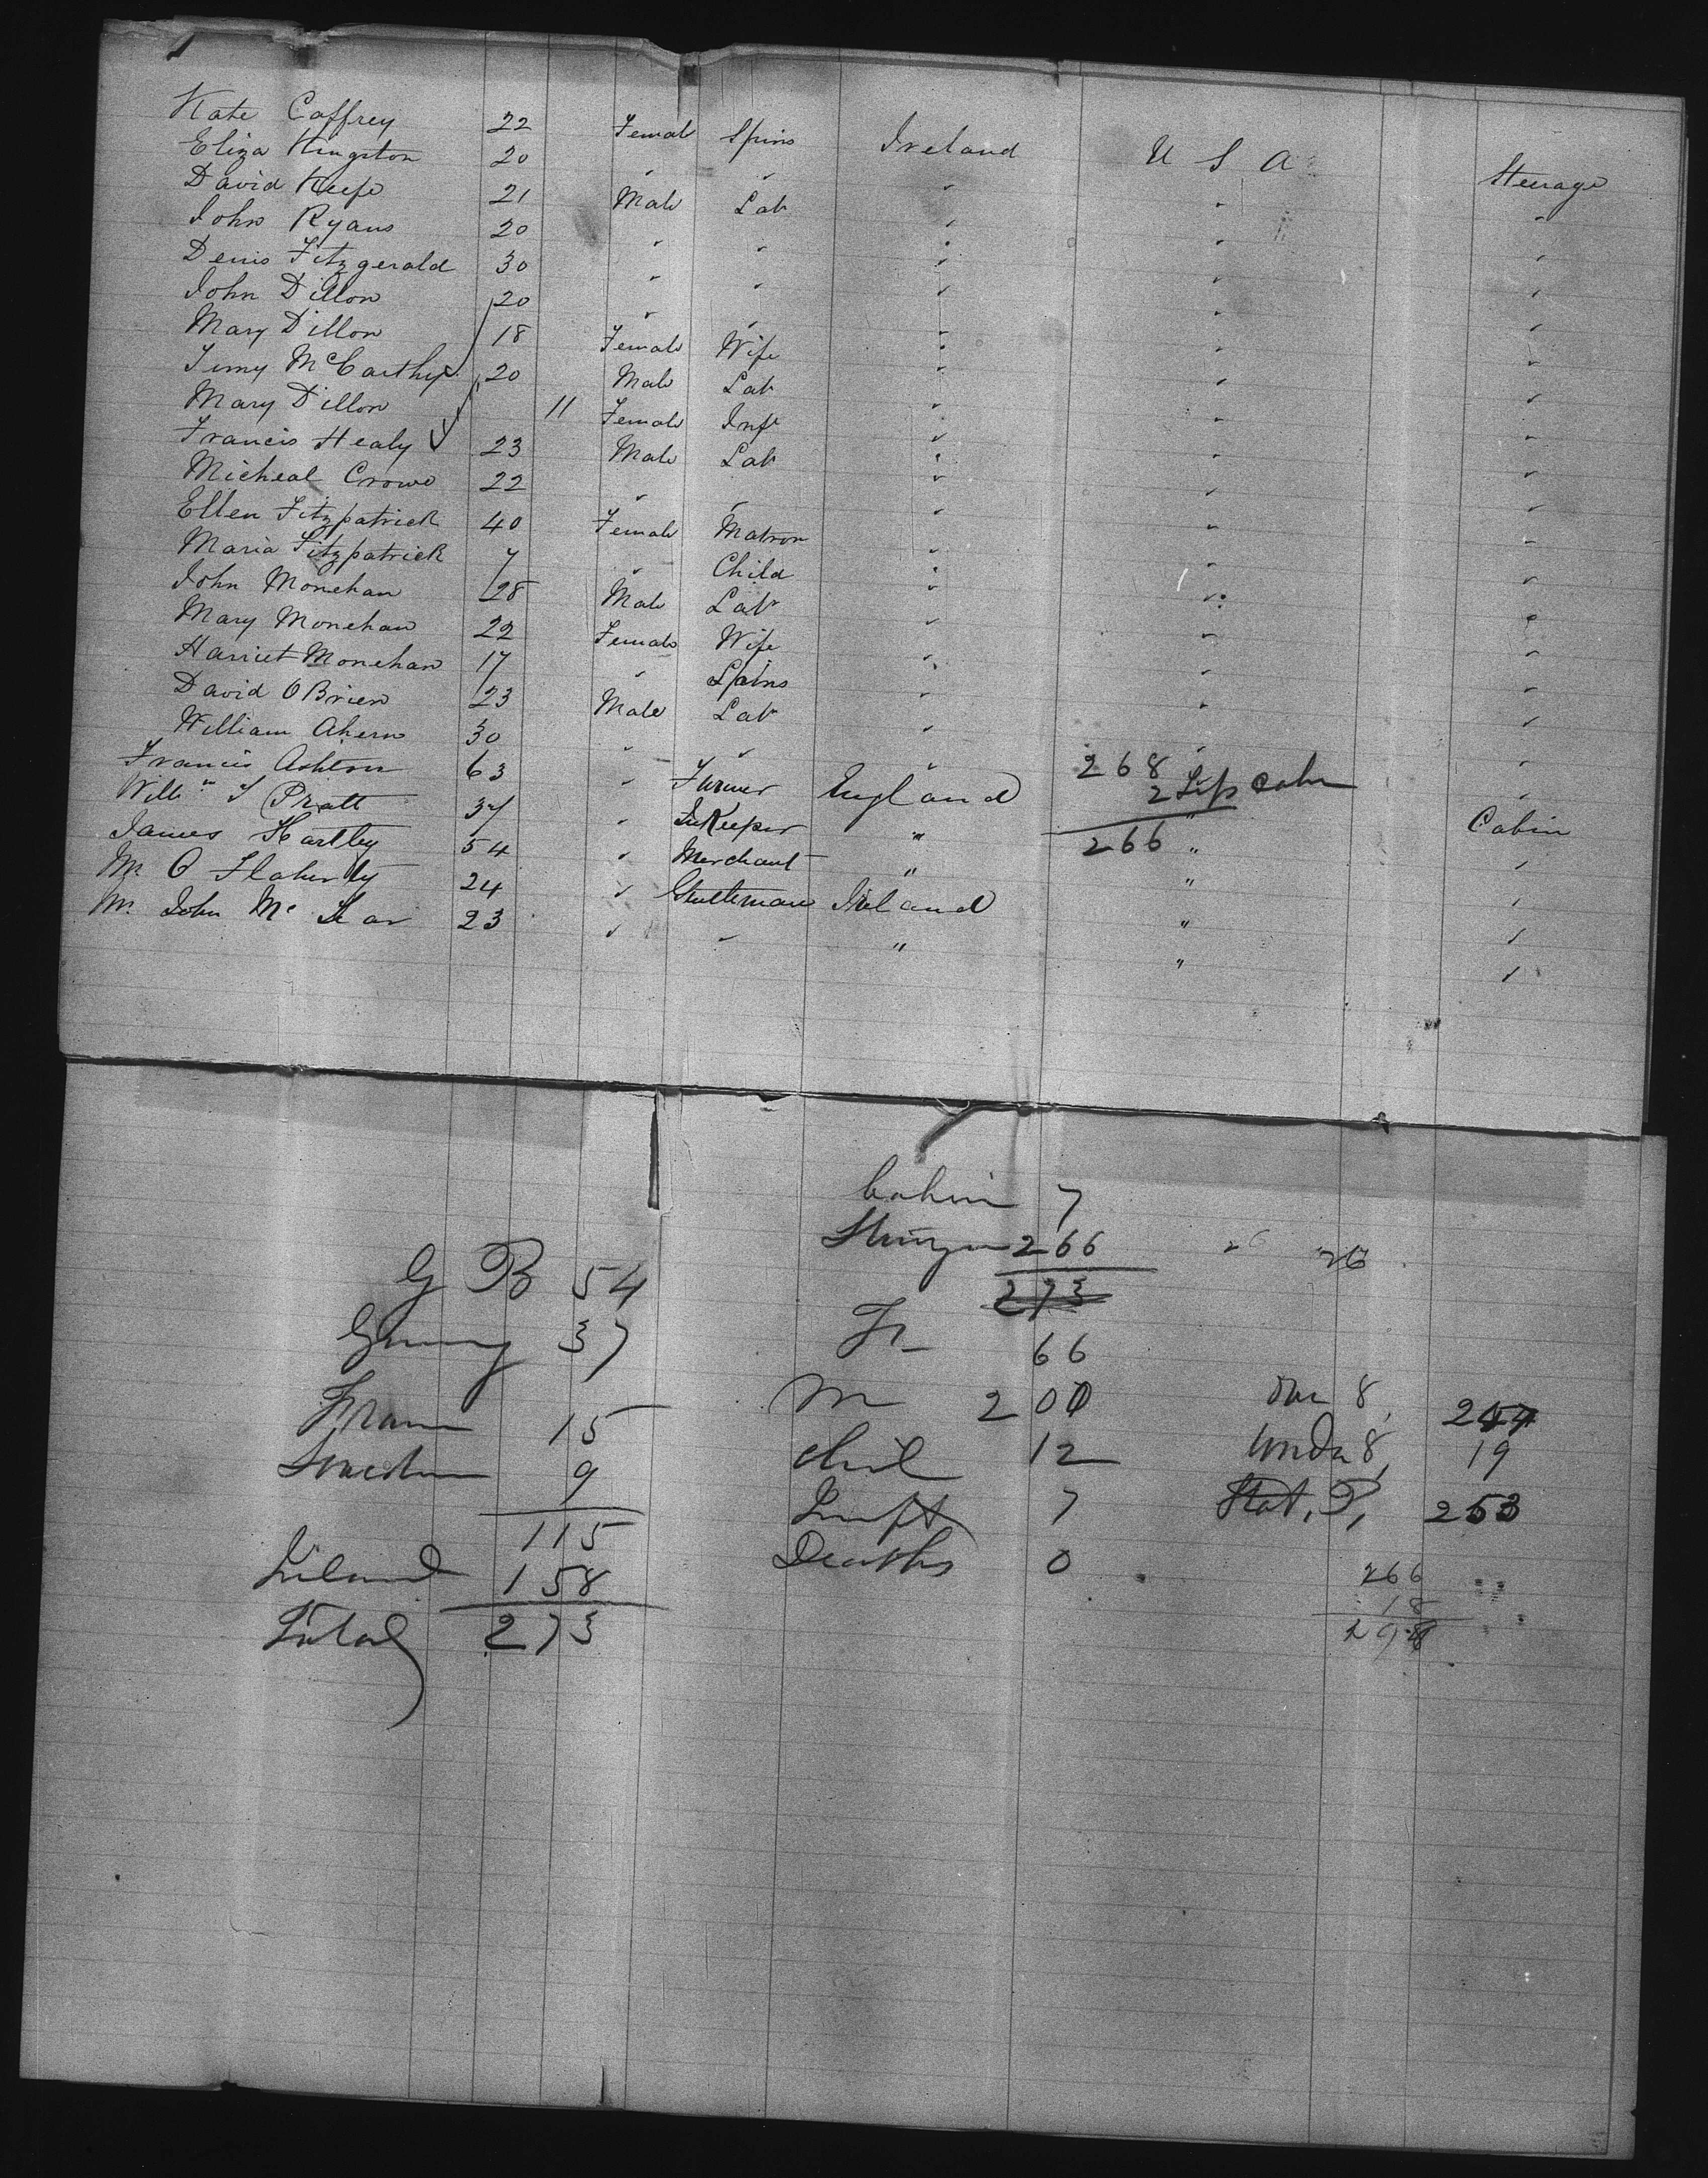 Kate Caffrey 22 Female Spins Ireland U S A Steerage
Eliza Kingston 20 " " " " "
David Keefe 21 Male Lab " " "
John Ryans 20 " " " " "
Denis Fitzgerald 30 " " " " "
John Dillon 20 " " " " "
Mary Dillon 18 Female Wife " " "
Jimy McCarthy 20 Male Lab " " "
Mary Dillon 11 Female Inft " " "
Francis Healy 23 Male Lab " " "
Micheal Crowe 22 " " " " "
Ellen Fitzpatrick 40 Female Matron " " "
Maria Fitzpatrick 7 " Child " " "
John Monehan 28 Male Lab " " "
Mary Monehan 22 Female Wife " " "
Harriet Monehan 17 " Spins " " "
David OBrien 23 Male Lab " " "
William Ahern 30 " " " " "
Francis Ashton 63 " Farmer England " Cabin
Willm J Pratt 37 " InKeeper " " "
James Hartley 54 " Merchant " " "
Mr O Flaherty 24 " Gentleman Ireland " "
Mr John Mc 23 " " " " "
268
2 cabin
266
Cabin 7
Steerage 266
273
26
G B 54
Germany 37
Fran 15
9
115
Ireland 158
Total 273
F 66
M 200
Chil 12
Inft 7
Deaths 0
Over 8, 254
Under 8, 19
Stat. P, 253
266
18